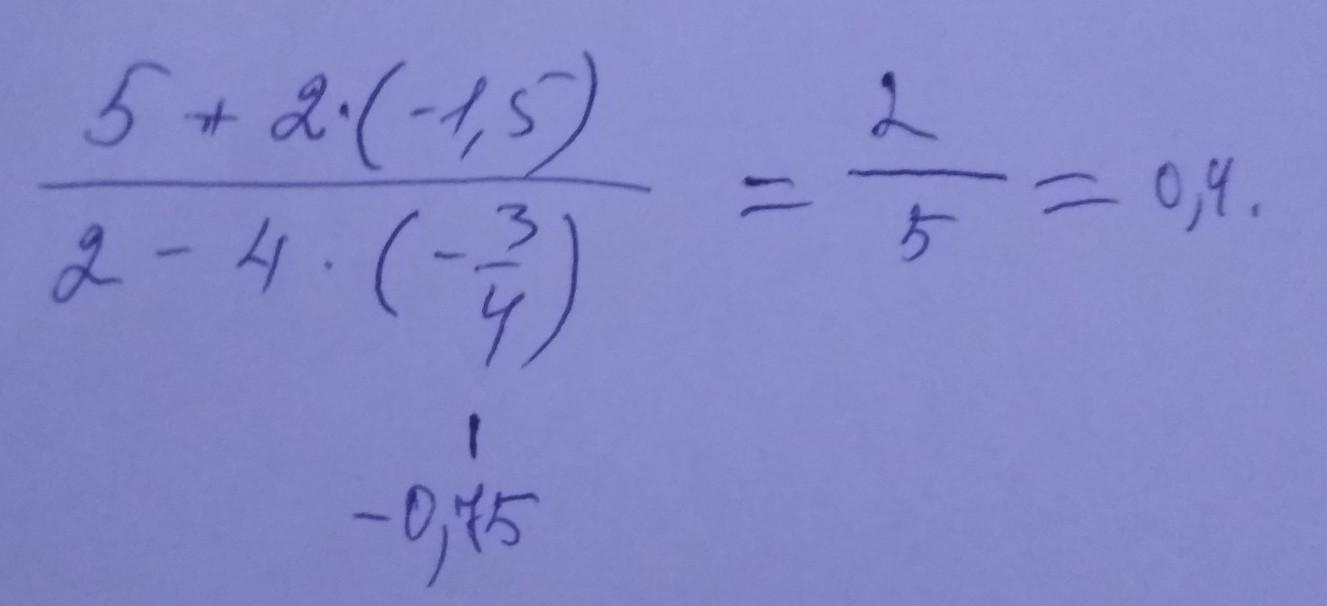 5 + 2·(-1,5)
2 - 4 · (-3/4)
= 2/5 = 0,4.
-0,75